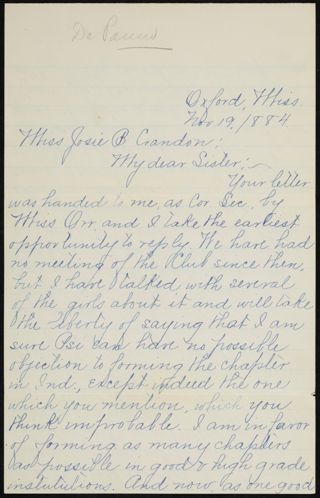 De Pauw
Oxford, Miss.
Nov. 19, 1884.
Miss Josie B Crandon;
My dear Sister;
Your letter
was handed to me, as Cor. Sec., by
Miss Orr, and I take the earliest
opportunity to reply. We have had
no meeting of the Club since then,
but I have talked with several
of the girls about it and will take
the liberty of saying that I am
sure Psi can have no possible
objection to forming the chapter
in Ind., except indeed the one
which you mention, which you
think improbable. I am in favor
of forming as many chapters
as possible in good & high grade
institutions. And now as one good